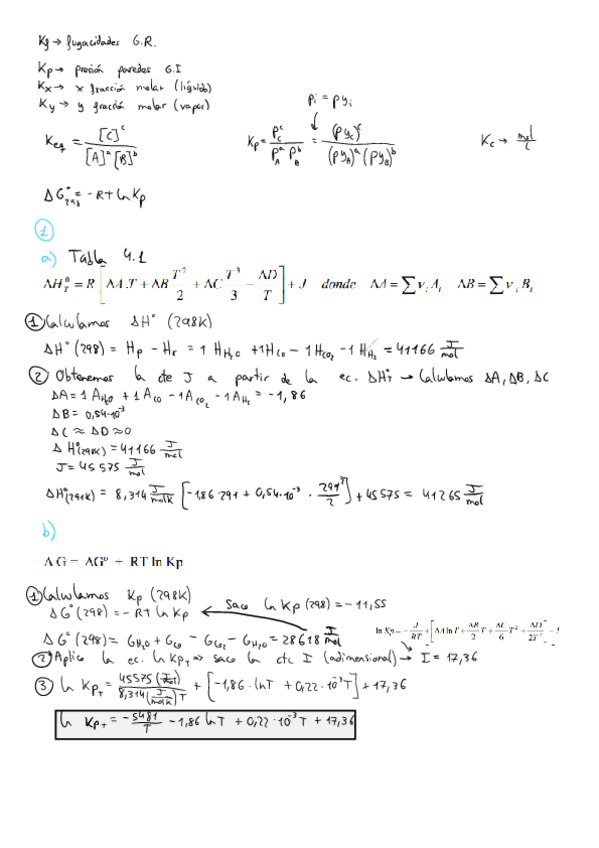 Kf → fugacidades G.R.
Kp → presión paredes G.I
Kx → x fracción molar (líquido)
Ky → y fracción molar (vapor)
Pi = Pyi
Keq = [C]^c / [A]^a [B]^b
Kp = P_C^c / P_A^a P_B^b = (Py_C)^c / (Py_A)^a (Py_B)^b
Kc → mol/L
ΔG°298 = -RT ln Kp
1
a) Tabla 4.1
ΔH_T^0 = R [ΔA.T + ΔB T²/2 + ΔC T³/3 - ΔD/T] + J donde ΔA = ∑ v_i A_i ΔB = ∑ v_i B_i
① Calculamos ΔH° (298K)
ΔH°(298) = Hp - Hr = 1 H_H2O + 1 H_CO - 1 H_CO2 - 1 H_H2 = 41166 J/mol
② Obtenemos la cte J a partir de la ec. ΔH°T → Calculamos ΔA, ΔB, ΔC
ΔA = 1 A_H2O + 1 A_CO - 1 A_CO2 - 1 A_H2 = -1,86
ΔB = 0,54·10^-3
ΔC ≈ ΔD ≈ 0
ΔH°(298K) = 41166 J/mol
J = 45575 J/mol
ΔH°(291K) = 8,314 J/molK [-1,86·291 + 0,54·10^-3 · 291²/2] + 45575 = 41265 J/mol
b)
ΔG = ΔG° + RT ln Kp
① Calculamos Kp (298K)
ΔG°(298) = -RT ln Kp
Saco ln Kp (298) = -11,55
ΔG°(298) = G_H2O + G_CO - G_CO2 - G_H2O = 28618 J/mol
ln Kp = - J/RT + [ΔA ln T + ΔB/2 T + ΔC/6 T² + ΔD/2T²
② Aplico la ec. ln KpT => saco la cte I (adimensional) → I = 17,36
③ ln KpT = 45575 (J/mol) / 8,314 (J/molK) T + [-1,86 · lnT + 0,22·10^-3 T] + 17,36
ln KpT = -5481/T - 1,86 ln T + 0,22·10^-3 T + 17,36